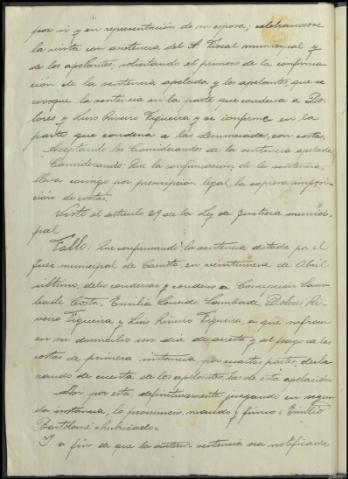 por si y en representación de su esposa; celebrandose
la vista con asistencia del Sr. Fiscal municipal y
de los apelantes, solicitando el primero de la confirma-
ción de la sentencia apelada y los apelantes, que se
revoque la sentencia en la parte que condena a Do-
lores y Luis Riveiro Figueira y se confirme en la
parte que condena a las denunciadas, con costas.
Aceptando los Considerandos de la sentencia apelada
Considerando: Que la confirmación de la sentencia
lleva consigo por prescripción legal, la expresa imposi-
ción de costas.
Visto el artículo 29 de la Ley de Justicia munici-
pal
Fallo: Que confirmando la sentencia dictada por el
Juez municipal de en veintinueve de Abril
último, debo condenar y condeno a Concepción Lam-
Costa, Emilia Dolores Ri-
veiro Figueira y Luis Riveiro Figueira a que sufran
en su domicilio un dia de arresto y al pago de las
costas de primera instancia por cuartas partes, decla-
rando de cuenta de los apelantes, las de esta apelación
Así por esta, definitivamente juzgando en segun-
da instancia, lo pronuncio, mando y firmo: Emilio
Bartolomé =Rubricado=
Y a fin de que la anterior sentencia sea notificada